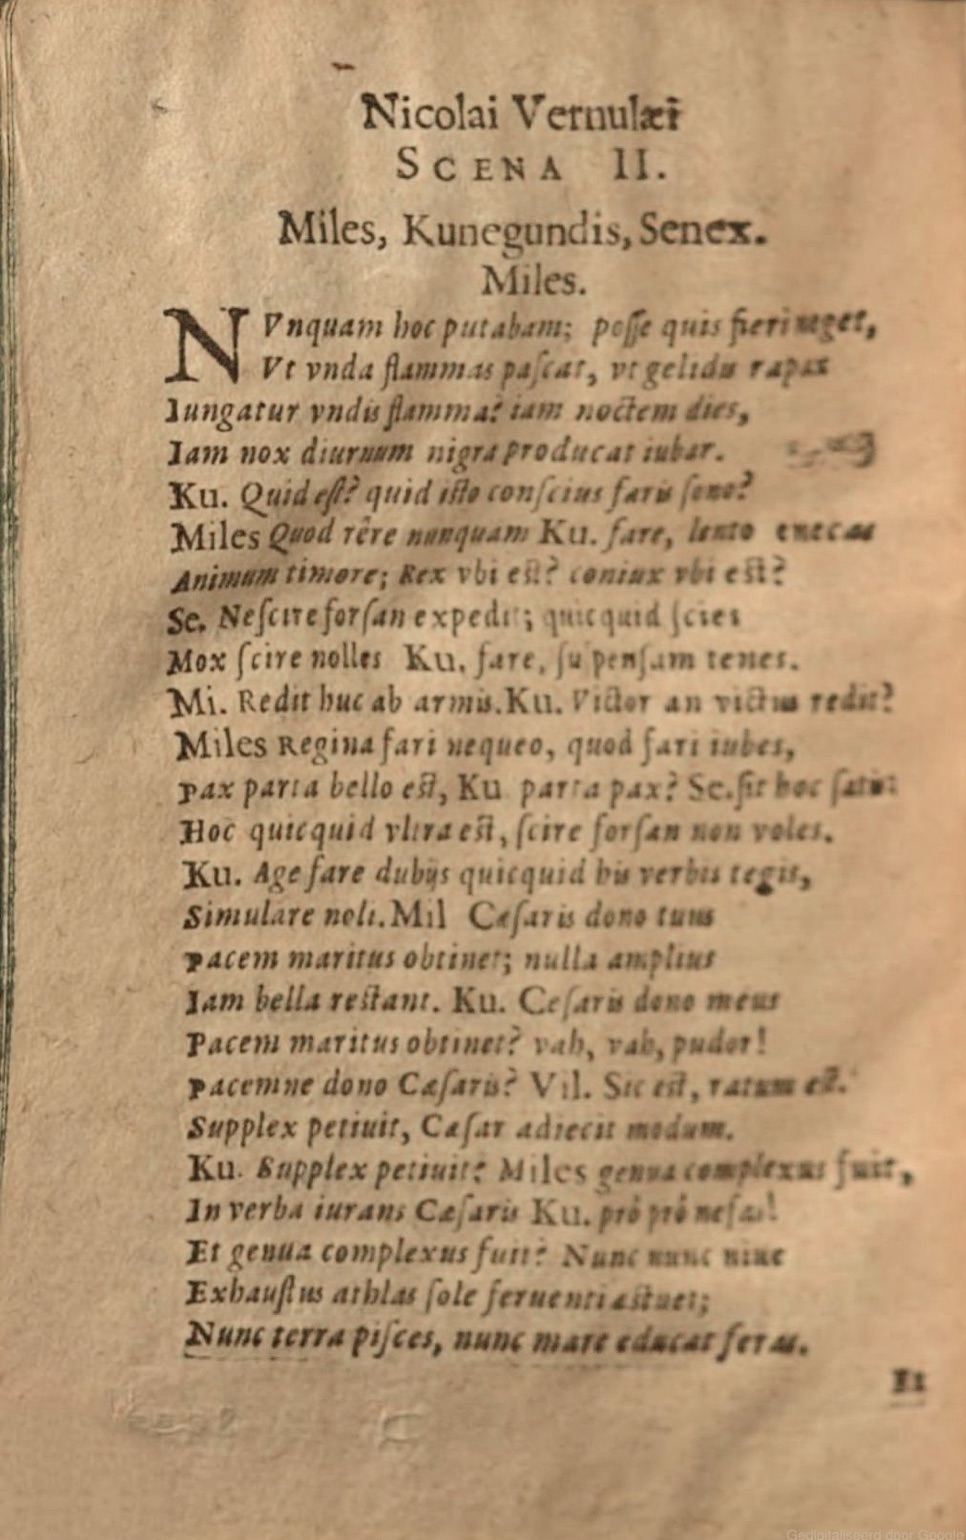 Nicolai Vernulæi
SCENA II.
Miles, Kunegundis, Senex.
Miles.
NVnquam hoc putabam; posse quis fieri neget,
Vt vnda flammas pascat, vt gelidis rapax
Iungatur vndis flamma? iam noctem dies,
Iam nox diurnum nigra producat iubar.
Ku. Quid est? quid isto conscius faris sono?
Miles Quod rêre nunquam Ku. fare, lento enecas
Animum timore; Rex vbi est? coniux vbi est?
Se. Nescire forsan expedit; quicquid scies
Mox scire nolles Ku. fare, suspensam tenes.
Mi. Redit huc ab armis. Ku. Victor an victus redit?
Miles Regina fari nequeo, quod fari iubes,
pax parta bello est, Ku parta pax? Se. sit hoc satis:
Hoc quicquid vltra est, scire forsan non voles.
Ku. Age fare dubijs quicquid his verbis tegis,
Simulare noli. Mil Cæsaris dono tuus
pacem maritus obtinet; nulla amplius
Iam bella restant. Ku. Cesaris dono meus
Pacem maritus obtinet? vah, vah, pudor!
pacemne dono Cæsaris? Vil. Sic est, ratum est.
Supplex petiuit, Cæsar adiecit modum.
Ku. Supplex petiuit? Miles genua complexus fuit,
In verba iurans Cæsaris Ku. prô prô nefas!
Et genua complexus fuit? Nunc nunc niue
Exhaustus athlas sole feruenti æstuet;
Nunc terra pisces, nunc mare educat feras.
Gedigitaliseerd door Google